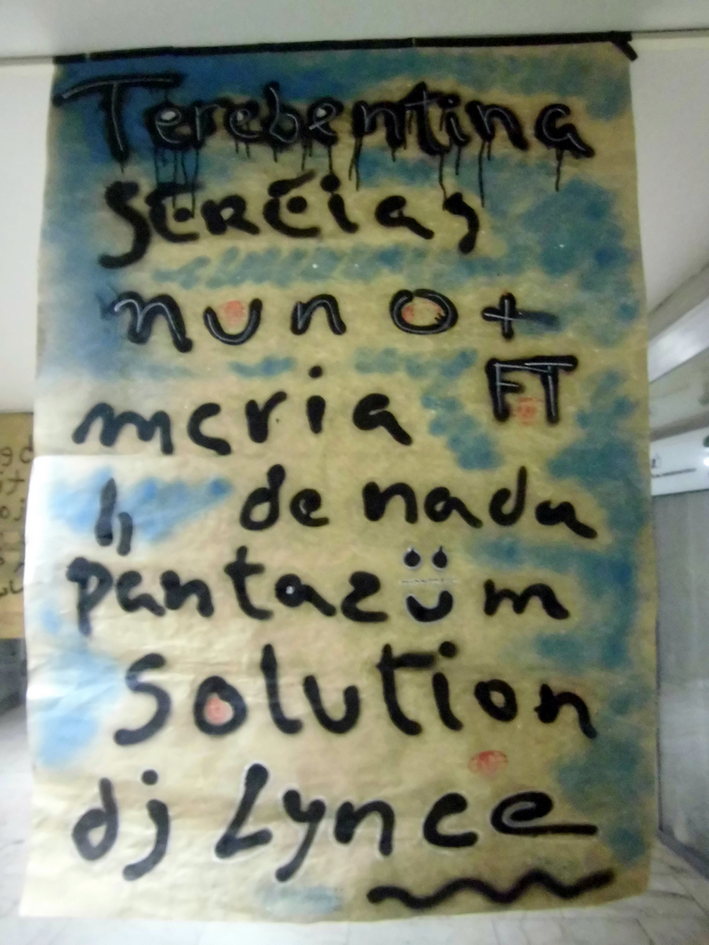 Terebentina
SEREias
nuno +
FT
maria
de nada
pantazüm
Solution
dj Lynce